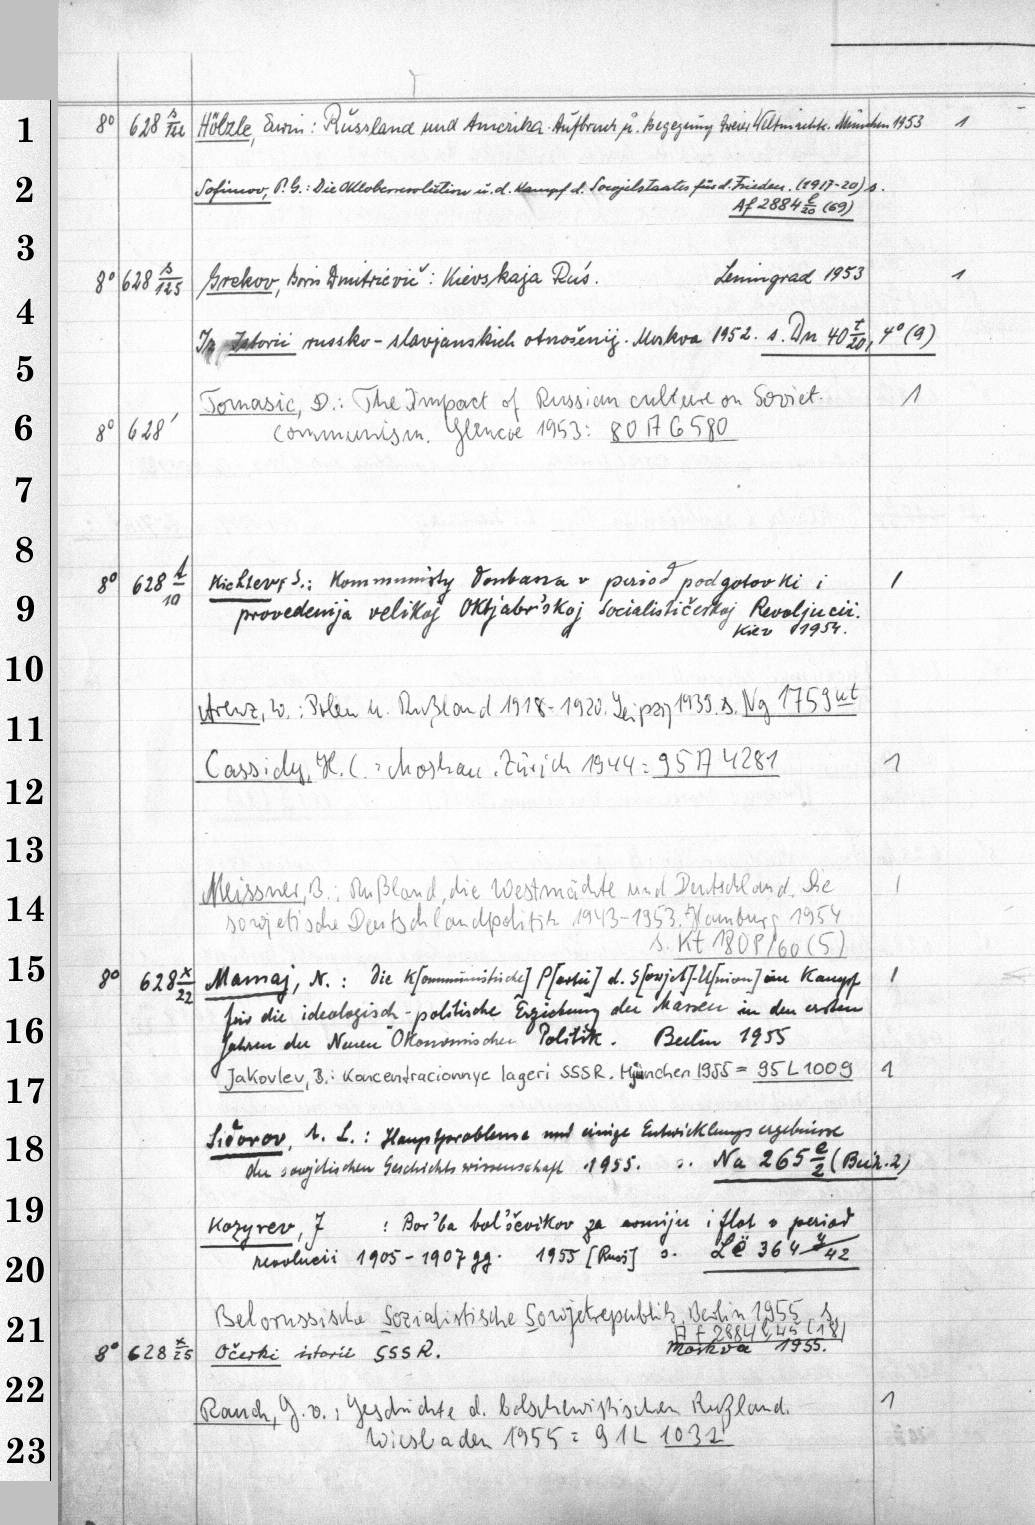 1 8° 628 s/124 Hölzle, Erwin: Russland und Amerika. Aufbruch u. Begegnung zweier Weltmächte. München 1953 1
2 Sofinov, P. G.: Die Oktoberrevolution u. d. Kampf d. Sowjetstaates für d. Frieden. (1917-20) s.
Af 2884 l/20 (69)
3 8° 628 s/125 Grekov, Boris Dmitrievič: Kievskaja Ruś. Leningrad 1953 1
4 Iz Istorii russko-slavjanskich otnošenij. Moskva 1952. s. Dn 40 t/20, 4° (9)
5 Tomasic, D.: The Impact of Russian culture on Soviet 1
6 8° 628 communism. Glencoe 1953: 80 A 6580
7
8
8° 628 t/10 S.: Kommunisty Donbassa v period podgotovki i 1
9 provedenija velikoj Oktjabr'skoj Socialističeskoj Revoljucii.
Kiev 1954.
10
11 Arenz, W.: Polen u. Rußland 1918-1920. Leipzig 1939. s. Ng 1759 ut
12 Cassidy, H. C.: Moskau. Zürich 1944 = 95 A 4281 1
13
14 Meissner, B.: Rußland, die Westmächte und Deutschland. Die 1
sowjetische Deutschlandpolitik 1943-1953. Hamburg 1954
s. Kt 1808/60 (5)
15 8° 628 x/22 Mamaj, N.: Die K[ommunistische] P[artei] d. S[owjet]-U[nion] im Kampf 1
für die ideologisch-politische Erziehung der Massen in den ersten
16 Jahren der Neuen Ökonomischen Politik. Berlin 1955
17 Jakovlev, B.: Koncentracionnye lageri SSSR. München 1955 = 95 L 1009 1
18 Sidorov, A. L.: Hauptprobleme und einige Entwicklungsergebnisse
der sowjetischen Geschichtswissenschaft 1955. s. Na 265 e/2 (Beih. 2)
19 Kozyrev, J : Bor'ba bol'ševikov za armiju i flot v period
20 revolucii 1905-1907 gg. 1955 [Russ] s. Lë 364 y/42
21 Belorussische Sozialistische Sowjetrepublik. Berlin 1955 s.
Af 2884 l, 45 (18)
8° 628 x/25 Očerki istorii SSSR. Moskva 1955.
22 Rauch, G. v.: Geschichte d. bolschewistischen Rußland. 1
23 Wiesbaden 1955 = 91 L 1032